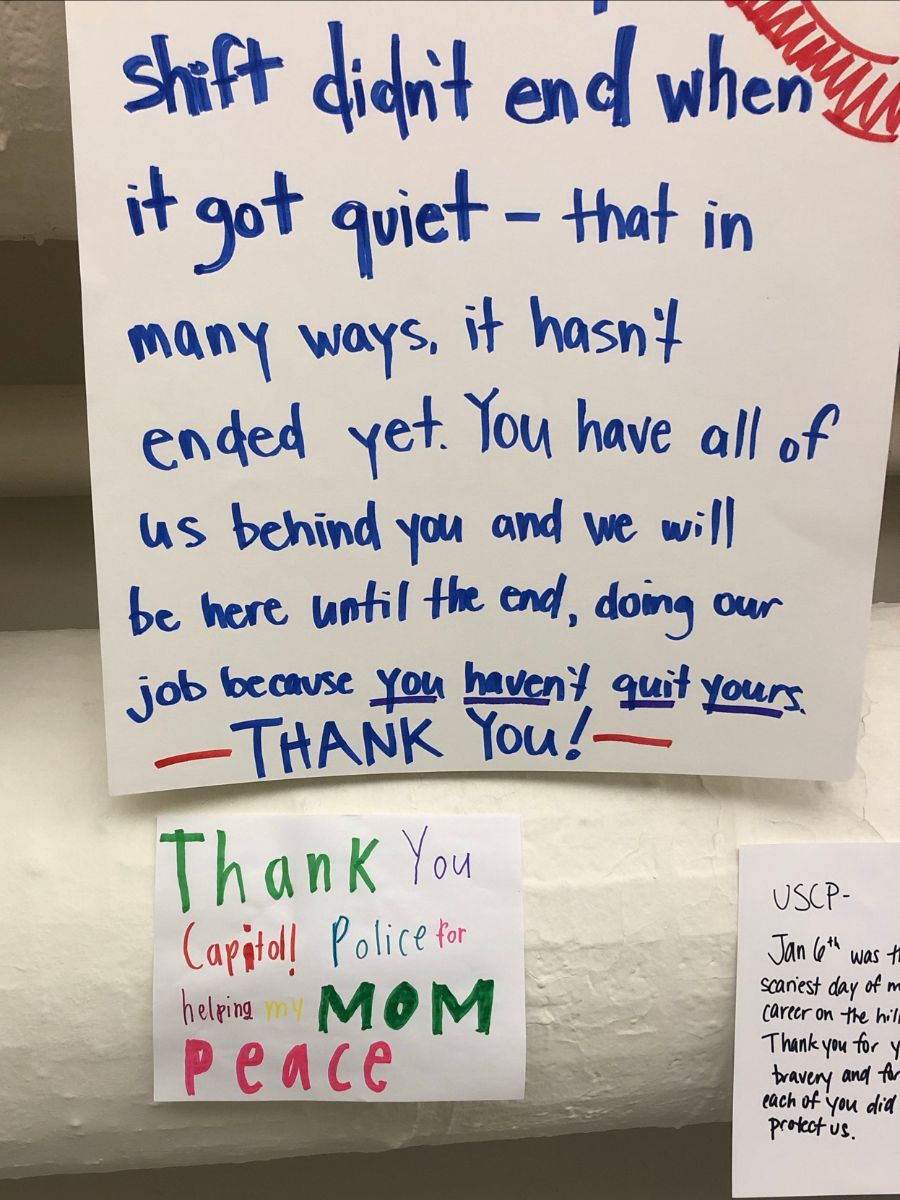 shift didn't end when
it got quiet - that in
many ways, it hasn't
ended yet. You have all of
us behind you and we will
be here until the end, doing our
job because you haven't quit yours.
— THANK YOU! —
Thank You
Capitol! Police for
helping my MOM
Peace
USCP-
Jan 6th was
scariest day of
career on the hill
Thank you for
bravery and for
each of you did
protect us.